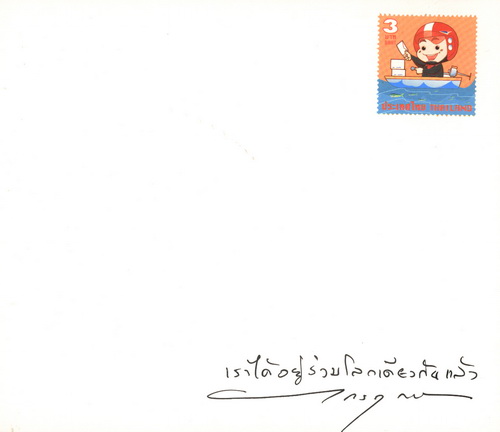 3
บาท
ประเทศไทย THAILAND
เราได้อยู่ร่วมโลกเดียวกันแล้ว